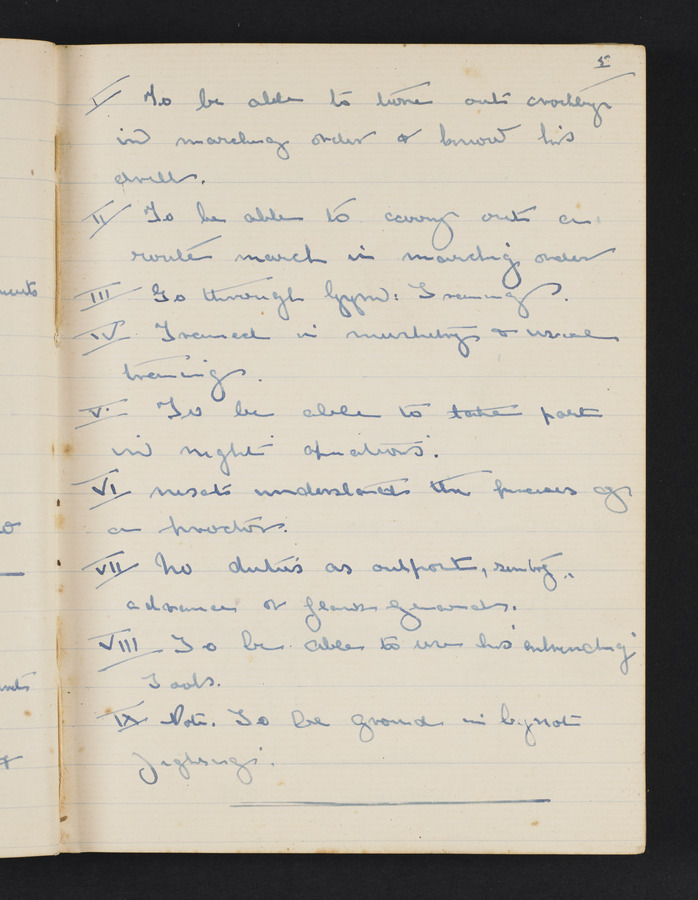 5
I To be able to turn out
in marching order & know his
drill.
II To be able to carry out a
route march in marching order
III Go through Gym: Training.
IV Trained in musketry & usual
training.
V. To be able to take part
in night operations.
VI must understand the of
a
VII his duties as outpost, sentry,
advance or flank guards.
VIII To be able to use his entrenching
Tools.
IX Note. To be in
fighting.